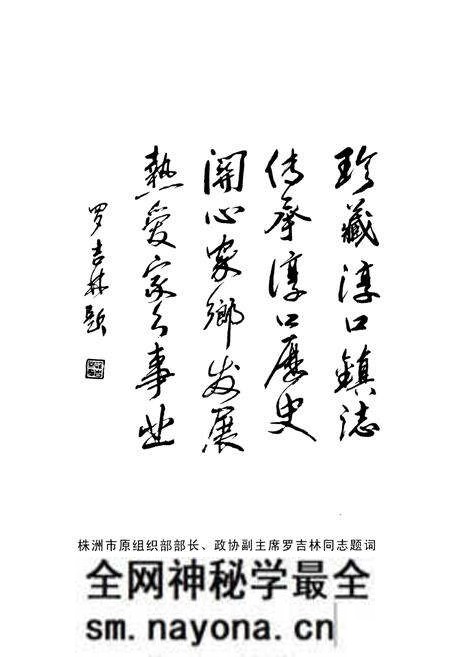 珍藏淳口鎮誌
传承淳口歷史
開心家鄉发展
熱爱家公事业
罗吉林题
株洲市原组织部部长、政协副主席罗吉林同志题词
全网神秘学最全
sm.nayona.cn